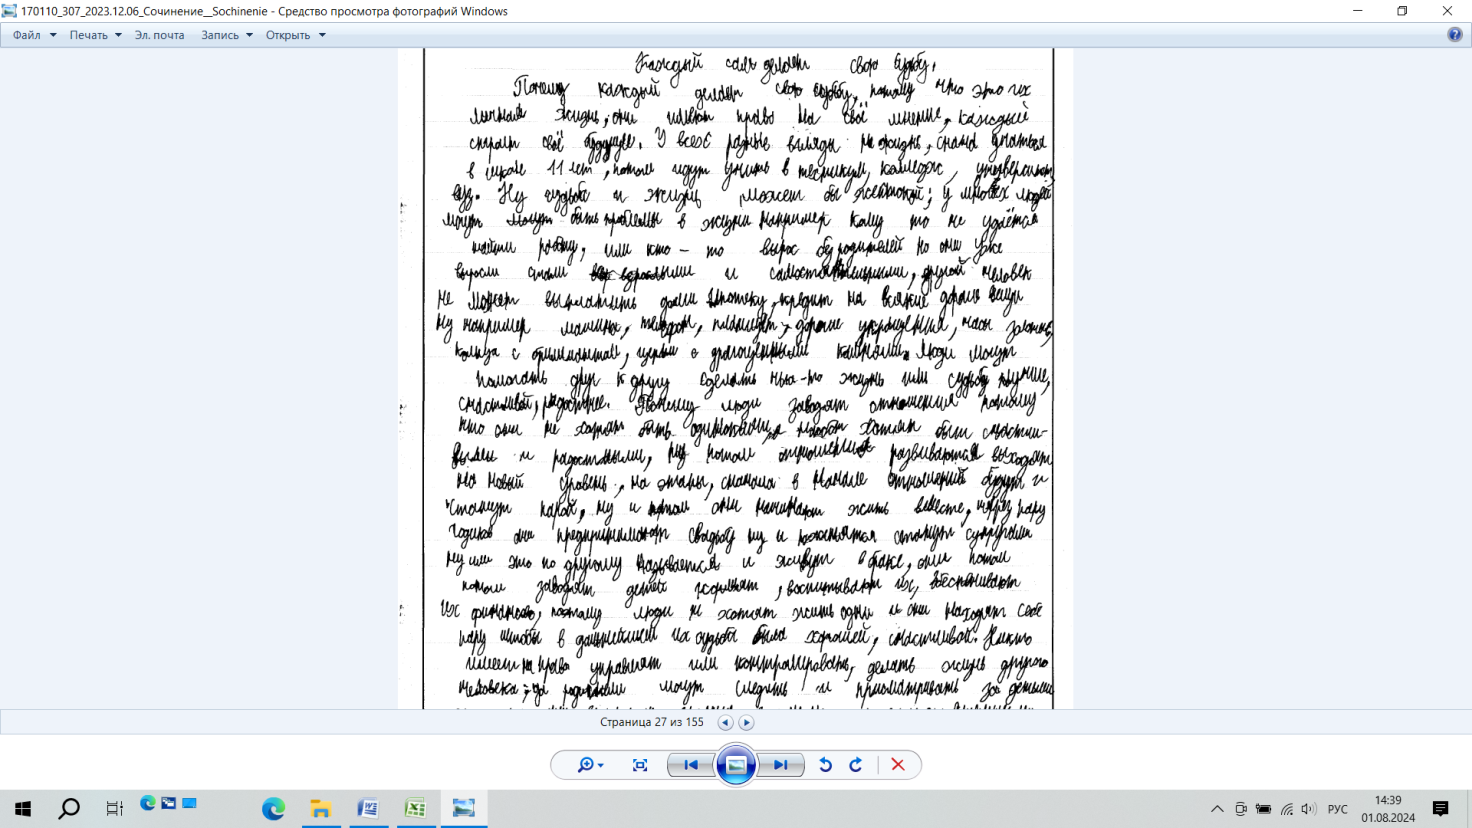 170110_307_2023.12.06_Сочинение__Sochinenie - Средство просмотра фотографий Windows
Файл Печать Эл. почта Запись Открыть
Каждый сам делает свою судьбу.
Почему каждый делает свою судьбу, потому что это их
личная жизнь, они имеют право на своё мнение, каждый
строит своё будущее. У всех разные взгляды на жизнь, сначала учатся
в школе 11 лет, потом идут учить в техникум, колледж,
вуз. Ну судьба и жизнь может бы жестокой; у многих людей
могут быть проблемы в жизни например кому то не удаётся
найти работу, или кто-то вырос без родителей но они уже
взросли стали взрослыми и самостоятельными, другой человек
не может выплатить долги ипотеку, кредит на всякие дорогие вещи
ну например машины, телефон, планшет, дорогие украшения, часы золотые,
кольца с бриллиантам, с драгоценными камнями. Люди могут
помогать друг к другу сделать чью-то жизнь или судьбу лучше,
счастливой, радостнее. Почему люди заводят отношения потому
что они не хотят быть одинокими, а хотят быть счастли-
выми и радостными, ну потом отношения развиваются выходят
на новый уровень, на этапы, сначала в начале отношений и
станут парой, ну и потом они начинают жить вместе, через пару
годиков они предпринимают свадьбу ну и станут супругами
ну или это по другому называется и живут в браке, они потом
потом заводят детей кормят, воспитывают их, обеспечивают
их финансово, поэтому люди не хотят жить одни и они находят себе
пару чтобы в дальнейшем их судьба была хорошей, счастливой. Никто
имеет права управлять или контролировать, делать жизнь другого
человека, могут следить и присматривать за детьми
Страница 27 из 155
РУС
14:39
01.08.2024